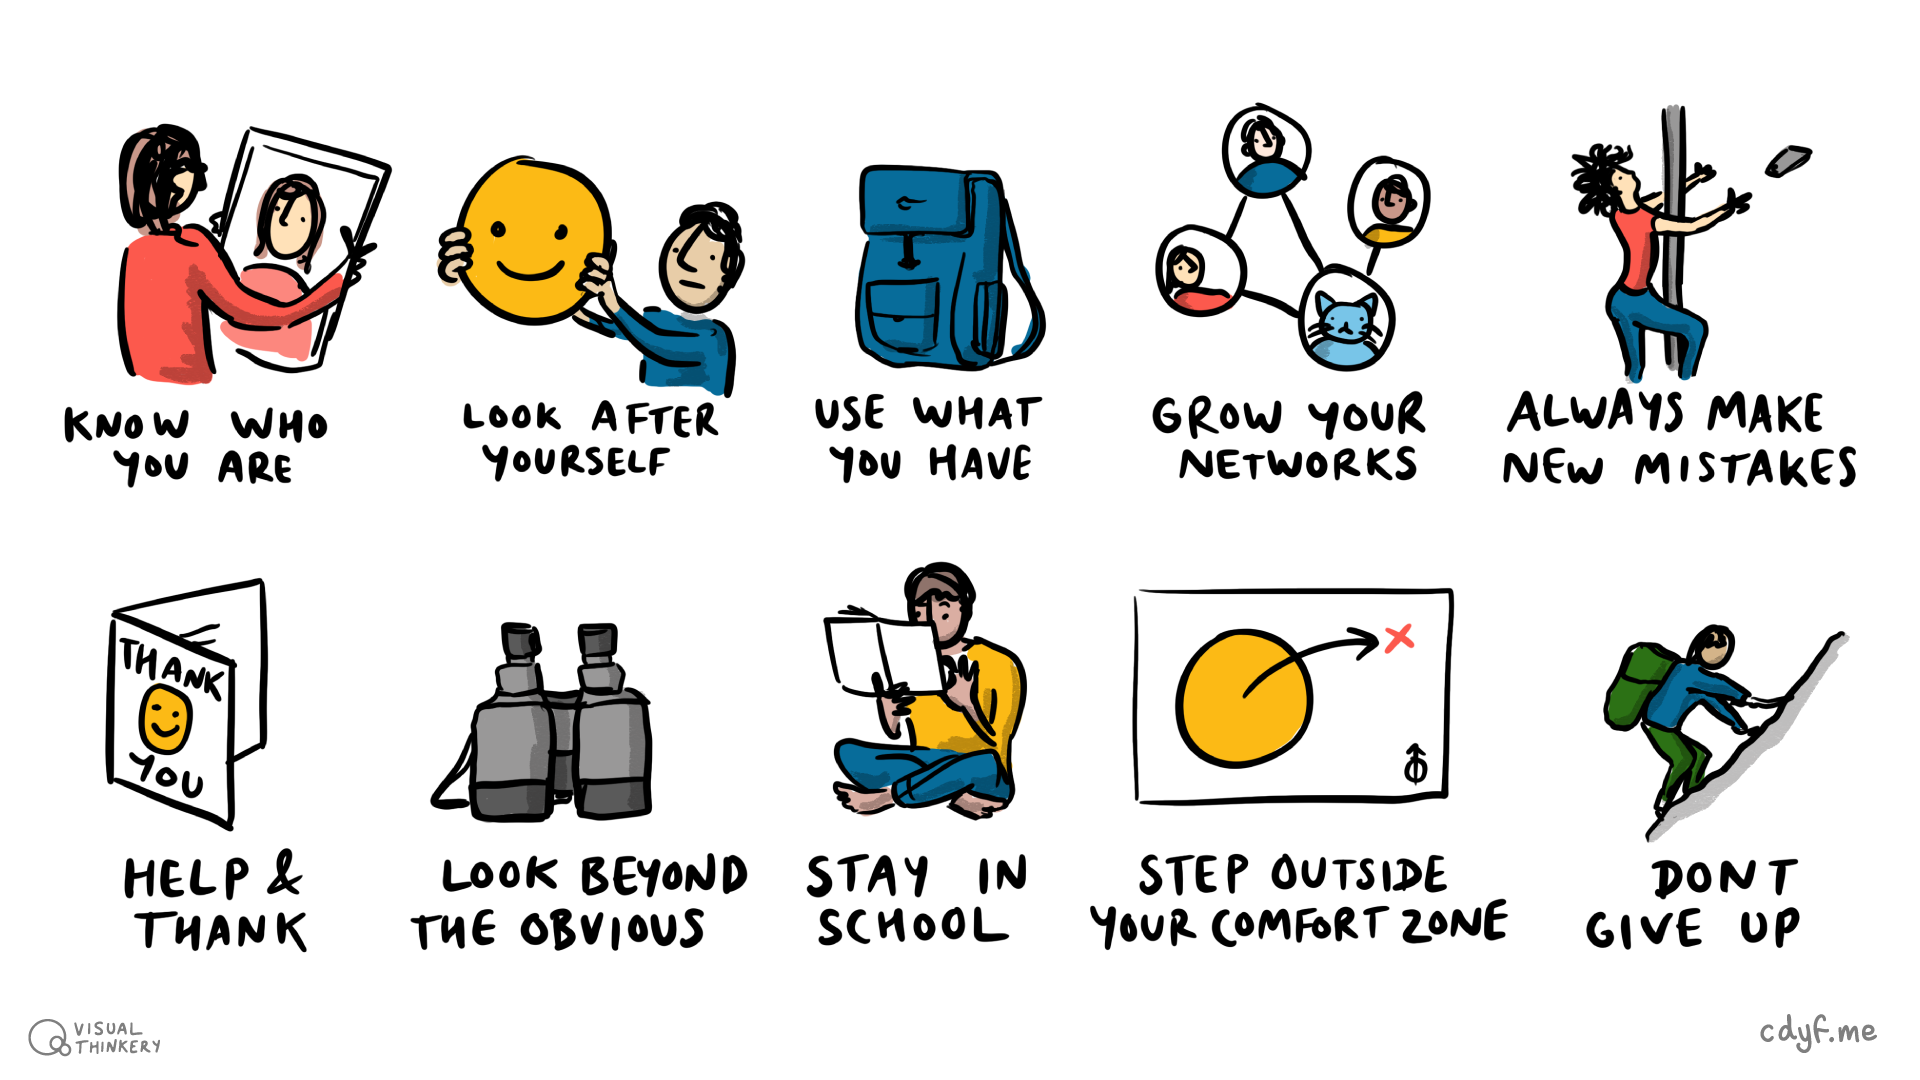 KNOW WHO
YOU ARE
LOOK AFTER
YOURSELF
USE WHAT
YOU HAVE
GROW YOUR
NETWORKS
ALWAYS MAKE
NEW MISTAKES
THANK
YOU
HELP &
THANK
LOOK BEYOND
THE OBVIOUS
STAY IN
SCHOOL
STEP OUTSIDE
YOUR COMFORT ZONE
DONT
GIVE UP
VISUAL
THINKERY
cdyf.me